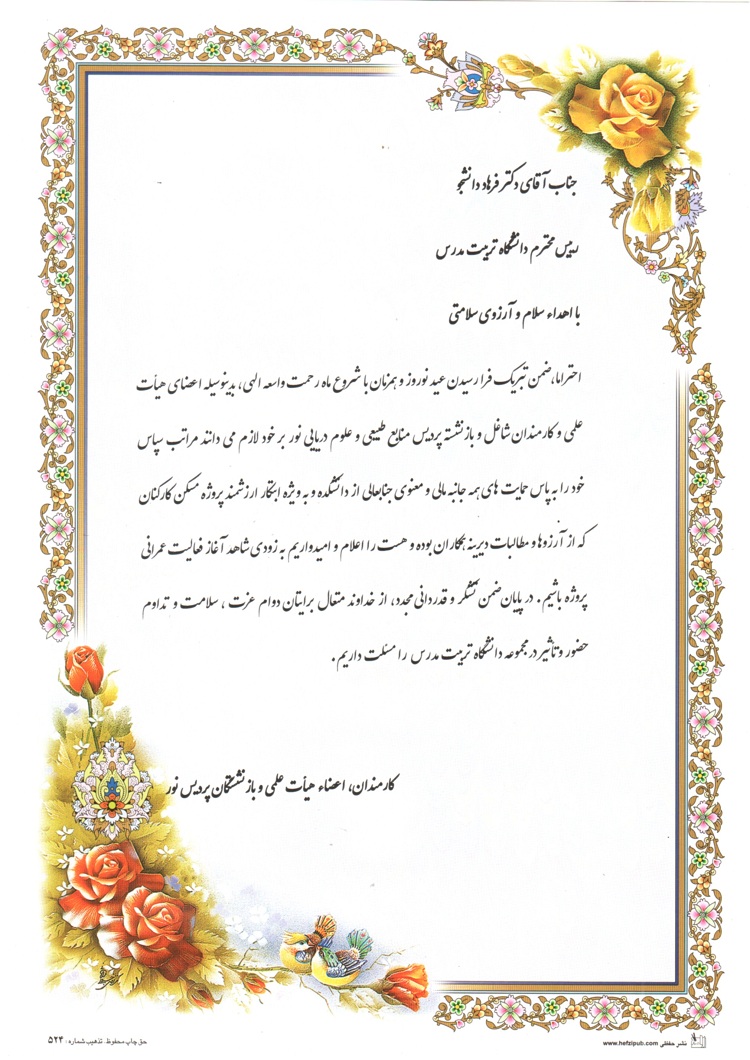 جناب آقای دکتر فرهاد دانشجو
رییس محترم دانشگاه تربیت مدرس
با اهداء سلام و آرزوی سلامتی
احتراما، ضمن تبریک فرا رسیدن عید نوروز و همزمان با شروع ماه رحمت واسعه الهی، بدینوسیله اعضای هیأت
علمی و کارمندان شاغل و بازنشسته پردیس منابع طبیعی و علوم دریایی نور بر خود لازم می دانند مراتب سپاس
خود را به پاس حمایت های همه جانبه مالی و معنوی جنابعالی از دانشکده و به ویژه ابتکار ارزشمند پروژه مسکن کارکنان
که از آرزوها و مطالبات دیرینه همکاران بوده و هست را اعلام و امیدواریم به زودی شاهد آغاز فعالیت عمرانی
پروژه باشیم. در پایان ضمن تشکر و قدردانی مجدد، از خداوند متعال برایتان دوام عزت، سلامت و تداوم
حضور و تأثیر در مجموعه دانشگاه تربیت مدرس را مسئلت داریم.
کارمندان، اعضاء هیأت علمی و بازنشستگان پردیس نور
حق چاپ محفوظ. تذهیب شماره: ۵۲۴
نشر حفظی www.hefzipub.com